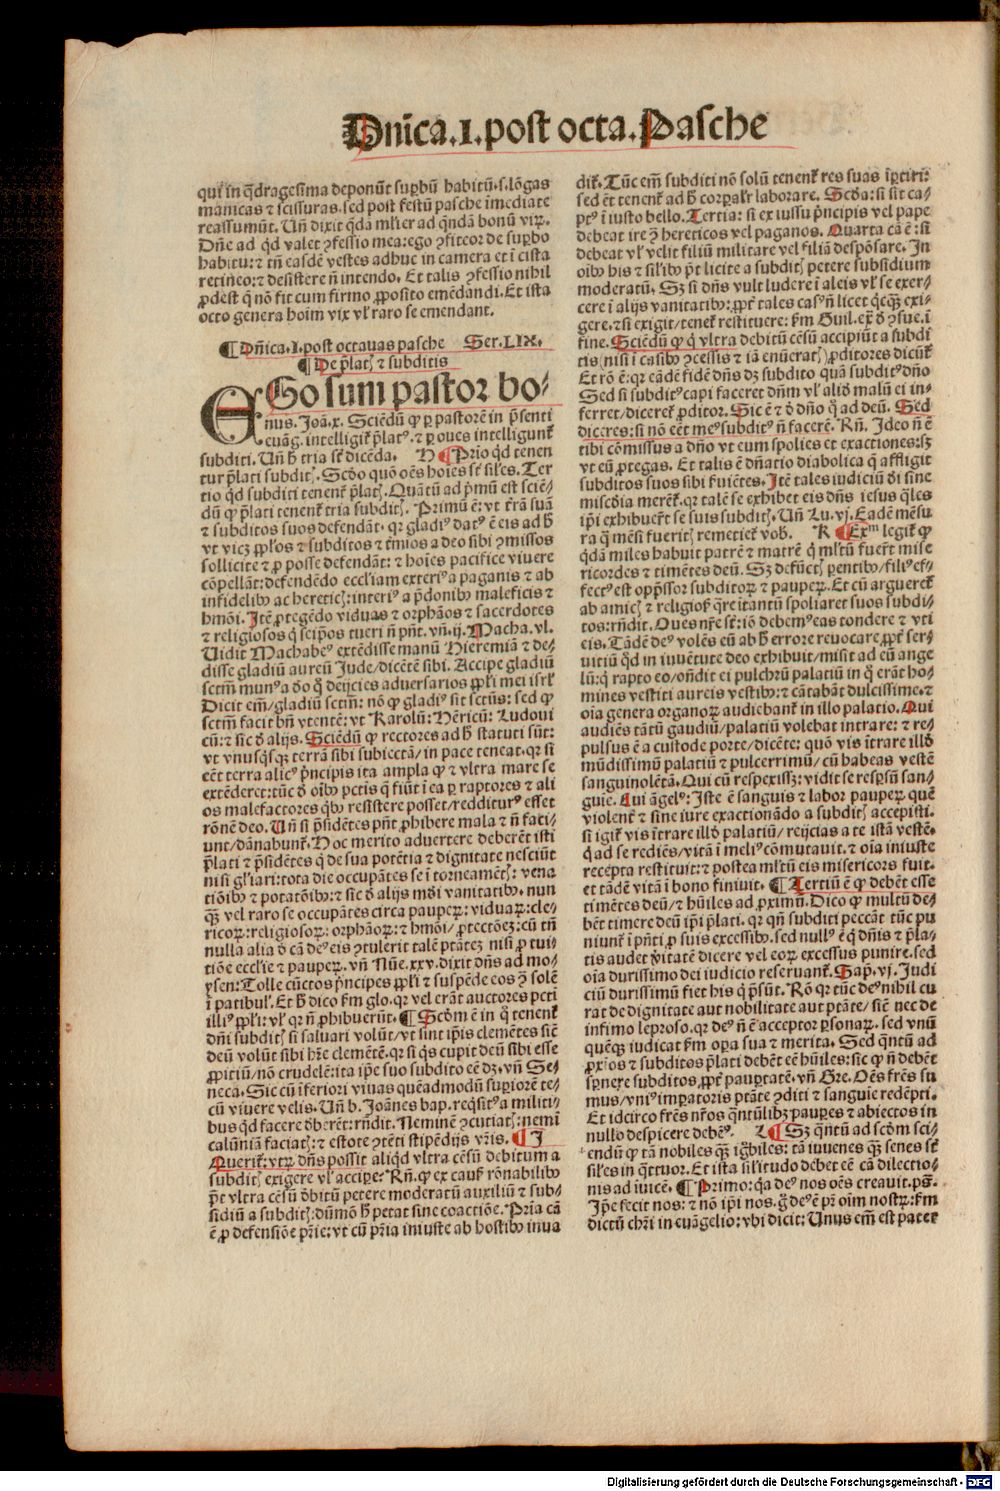 Dnīca.I.post octa.Pasche
qui in q̄dragesima deponūt suꝑbū habitū.s.lōgas
manicas ⁊ scissuras.sed post festū pasche imediate
reassumūt. Uñ dixit q̄dā mĺier ad q̄ndā bonū viꝝ.
Dñe ad qd valet ꝯfessio mea:ego ꝯfiteor de suꝑbo
habitu:⁊ tñ easdē vestes adhuc in camera et ī cista
retineo:⁊ desistere ñ intendo. Et talis ꝯfessio nihil
ꝓdest q̄ nō fit cum firmo ꝓposito emēdandi. Et ista
octo genera hoīm vix vĺ raro se emendant.
¶Dñica.I.post octauas pasche Ser.LIX.
¶De p̄latꝭ ⁊ subditis
EGo sum pastor bo-
nus. Joā.x. Sciēdū ꝙ ꝑ pastorē in p̄senti
euāg. intelligit̄ p̄latꝰ.⁊ ꝑ oues intelligunt̄
subditi. Uñ hͥ tria sūt dicēda. H ¶Prīo qd tenen
tur p̄lati subditꝭ. Scdo quō oēs hoīes sūt siĺes. Ter
tio qd subditi tenent̄ p̄latꝭ. Quātū ad p̄mū est sciē-
dū ꝙ p̄lati tenent̄ tria subditꝭ. Primū ē: vt t̄rā suā
⁊ subditos suos defendāt. qr gladiꝰ datꝰ ē eis ad hͦ
vt vicꝫ ppĺos ⁊ subditos ⁊ t̄mios a deo sibi ꝯmissos
sollicite ⁊ ꝓ posse defendāt: ⁊ hoīes pacifice viuere
cōpellāt:defendēdo eccĺiam exteriꝰa paganis ⁊ ab
infidelibꝰ ac hereticꝭ:interiꝰ a p̄donibꝰ maleficis ⁊
hmōi. Itē ꝓtegēdo viduas ⁊ orphāos ⁊ sacerdotes
⁊ religiosos q̄ seip̄os tueri ñ pñt. vñ.ij. Macha. vl.
Uidit Machabeꝰ extēdisse manū Hieremiā ⁊ de-
disse gladiū aureū Jude/dicētē sibi. Accipe gladiū
sctm̄ munꝰa do q̄ deijcies aduersarios ppĺi mei isrĺ
Dicit em̄/gladiū sctm̄: nō ꝙ gladiꝰ sit sctūs: sed ꝙ
sctm̄ facit hūc vtentē: vt Karolū: Hēricū: Ludoui
cū: ⁊ sic de alijs. Sciēdū ꝙ rectores ad hͦ statuti sūt:
vt vnusq̄sqꝫ terrā sibi subiectā/in pace teneat. qr si
eēt terra alicꝰ p̄ncipis ita ampla ꝙ ⁊ vltra mare se
extēderet:tūc de oibꝰ pctīs q̄ fiūt ī ea ꝑ raptores ⁊ ali
os malefactores qͥbꝰ resistere posset/redditurꝰ esset
rōnē deo. Uñ si p̄sidētes pñt ꝓhibere mala ⁊ ñ faci-
unt/dānabunt̄. Hoc merito aduertere deberēt isti
p̄lati ⁊ p̄sidētes q̄ de sua potētia ⁊ dignitate nesciūt
nisi gĺiari:tota die occupātes se ī torneamētꝭ: vena
tiōibꝰ ⁊ potatōibꝰ:⁊ sic de alijs mūdi vanitatibꝰ. nun
qꝫ vel raro se occupātes circa pauperꝝ: viduarꝝ:cle-
ricorꝝ:religiosorꝝ: orphāorꝝ:⁊ hmōi/ ꝓtectōeꝫ: cū tñ
nulla alia de cā deꝰ eis ꝯtulerit talē ptātez nisi ꝓ tui-
tiōe eccĺie ⁊ pauperꝝ. vñ Nūe.xxv. dixit dñs ad mo-
ysen: Tolle cūctos p̄ncipes ppĺi ⁊ suspēde eos ꝯ solē
ī patibuĺ. Et hͦ dico ẜm glo. qr vel erāt auctores pcti
illiꝰ ppĺi: vĺ qr ñ ꝓhibuerūt. ¶Scdm̄ ē in q̄ tenent̄
dñi subditꝭ si saluari volūt/vt sint ip̄is clemētes sicut
deū volūt sibi hr̄e clemētē. qr si qͥs cupit deū sibi esse
ꝓpitiū/nō crudelē:ita ip̄e suo subdito eē dꝫ. vñ Se-
neca. Sic cū īferiori viuas quēadmodū suꝑiorē te-
cū viuere velis. Uñ b. Joānes bap. reqͥsitꝰa militi-
bus qd facere dberēt: rñdit. Neminē ꝯcutiatꝭ:nemī
calūniā faciatꝭ:⁊ estote ꝯtēti stipēdijs vr̄is. ¶ I
Querit̄: vtꝝ dñs possit aliqd vltra cēsū debitum a
subditꝭ exigere vĺ acciꝑe: Rñ. ꝙ ex caus̄ rōnabilibꝰ
p̄t vltra cēsū dbitū petere moderatū auxiliū ⁊ sub-
sidiū a subditꝭ:dūmō hͦ petat sine coactiōe. Prīa cā
ē ꝓ defensiōe pr̄ie: vt cū pr̄ia iniuste ab hostibꝰ inua
dit̄. Tūc em̄ subditi nō solū tenent̄ res suas īꝑtiri:
sed et̄ tenent̄ ad hͦ corꝑalr̄ laborare. Scda: si sit ca-
ptꝰ ī iusto bello. Tertia: si ex iussu p̄ncipis vel pape
debeat ire ꝯ hereticos vel paganos. Quarta cā ē: si
debeat vĺ velit filiū militare vel filiā despōsare. In
oibꝰ his ⁊ siĺibꝰ p̄t licite a subditꝭ petere subsidium
moderatū. Sꝫ si dñs vult ludere ī aleis vĺ se exer-
cere ī alijs vanitatibꝰ: ꝓpt̄ tales casꝰñ licet qͥcqꝫ exi-
gere. ⁊ si exigit/tenet̄ restituere: ẜm Guil. ext̄ de ꝯsue. ī
fine. Sciēdū ꝙ q̄ vltra debitū cēsū accipiūt a subdi
tis (nisi ī casibꝰ ꝯcessis ⁊ iā enūeratꝭ) ꝓditores dicūt̄
Et rō ē: qr eādē fidē dñs dꝫ subdito quā subditꝰdño
Sed si subditꝰcapi faceret dñm vĺ aliqd malū ei in-
ferret/diceret̄ ꝓditor. Sic ē ⁊ de dño q̄ ad deū. Sed
diceres: si nō eēt meꝰsubditꝰ ñ facerē. Rñ. Ideo ñ ē
tibi cōmissus a dño vt eum spolies et exactiones:sꝫ
vt eū ꝓtegas. Et talis ē dñatio diabolica q̄ affligit
subditos suos sibi ẜuiētes. Itē tales iudiciū di sine
miscdia meret̄. qr talē se exhibet eis dñs iesus q̄les
ip̄i exhibuert̄ se suis subditꝭ. Uñ Lu. vj. Eadē mēsu
ra q̄ mēsi fueritꝭ remetiet̄ vob̄. K ¶Exᵐ legit̄ ꝙ
q̄dā miles habuit patrē ⁊ matrē q̄ mĺtū fuert̄ mise
ricordes ⁊ timētes deū. Sꝫ defūctꝭ ꝑentibꝰ/filiꝰef-
fectꝰ est opp̄ssor subditorꝝ ⁊ pauperꝝ. Et cū arguerēt
ab amicꝭ ⁊ religios̄ q̄re itantū spoliaret suos subdi-
tos: rñdit. Oues nr̄e sūt: iō debemꝰeas tondere ⁊ vti
eis. Tādē deꝰ volēs eū ab hͦ errore reuocare ꝓpt̄ ser-
uitiū qd in iuuētute deo exhibuit/misit ad eū ange
lū: q̄ rapto eo/oñdit ei pulchrū palatiū in q̄ erāt ho-
mines vestiti aureis vestibꝰ: ⁊ cātabāt dulcissime. ⁊
oīa genera organorꝝ audiebant̄ in illo palatio. Qui
audiēs tātū gaudiū/palatiū volebat intrare: ⁊ re-
pulsus ē a custode porte/dicēte: quō vis ītrare illd
mūdissimū palatiū ⁊ pulcerrimū/ cū habeas vestē
sanguinolētā. Qui cū respexissꝫ: vidit se resꝑsū san-
guie. Cui āgelꝰ: Iste ē sanguis ⁊ labor pauperꝝ quē
violent̄ ⁊ sine iure exactionādo a subditꝭ accepisti.
si igit̄ vis ītrare illd palatiū/ reijcias a te istā vestē.
Qͥ ad se rediēs/vitā ī meliꝰ cōmutauit. ⁊ oīa iniuste
recepta restituit: ⁊ postea mĺtū eis misericors fuit.
et tādē vitā ī bono finiuit. ¶Tertiū ē ꝙ debēt esse
timētes deū/⁊ hūiles ad ꝓximū. Dico ꝙ multū de-
bēt timere deū ip̄i p̄lati. qr qñ subditi peccāt tūc pu
niunt̄ ī pñti ꝓ suis excessibꝰ. sed nullꝰ ē q̄ dñis ⁊ p̄la-
tis audet v̄itatē dicere vel eorꝝ excessus punire. sed
oīa durissimo dei iudicio reseruant̄. Sap. vj. Judi
ciū durissimū fiet his q̄ p̄sūt. Rō qr tūc deꝰnihil cu
rat de dignitate aut nobilitate aut ptāte/ sicut nec de
infimo leproso. qr deꝰ ñ ē acceptor ꝑsonarꝝ. sed vnū
quēqꝫ iudicat ẜm opa sua ⁊ merita. Sed q̄ntū ad
ꝓxīos ⁊ subditos p̄lati debēt eē hūiles: sic ꝙ ñ debēt
sꝑnere subditos ꝓpt̄ pauꝑtatē. vñ Gre. Oēs fr̄es su
mus/vniꝰimꝑatoris ptāte ꝯditi ⁊ sanguīe redēpti.
Et idcirco fr̄es nr̄os q̄ntūlibꝫ pauꝑes ⁊ abiectos in
nullo despicere debēꝰ. L ¶Sꝫ q̄ntū ad scdm sci-
endū ꝙ tā nobiles qꝫ ignobiles: tā iuuenes qꝫ senes sūt
siĺes in qͣttuor. Et ista siĺitudo debet eē cā dilectio-
nis ad inuicē. ¶Primo: q̄a deꝰ nos oēs creauit. ps̄.
Ip̄e fecit nos: ⁊ nō ip̄i nos. q̄ deꝰē pr̄ oīm nostꝝ: ẜm
dictū chr̄i in euāgelio: vbi dicit: Unus em̄ est pater
Digitalisierung gefördert durch die Deutsche Forschungsgemeinschaft - DFG